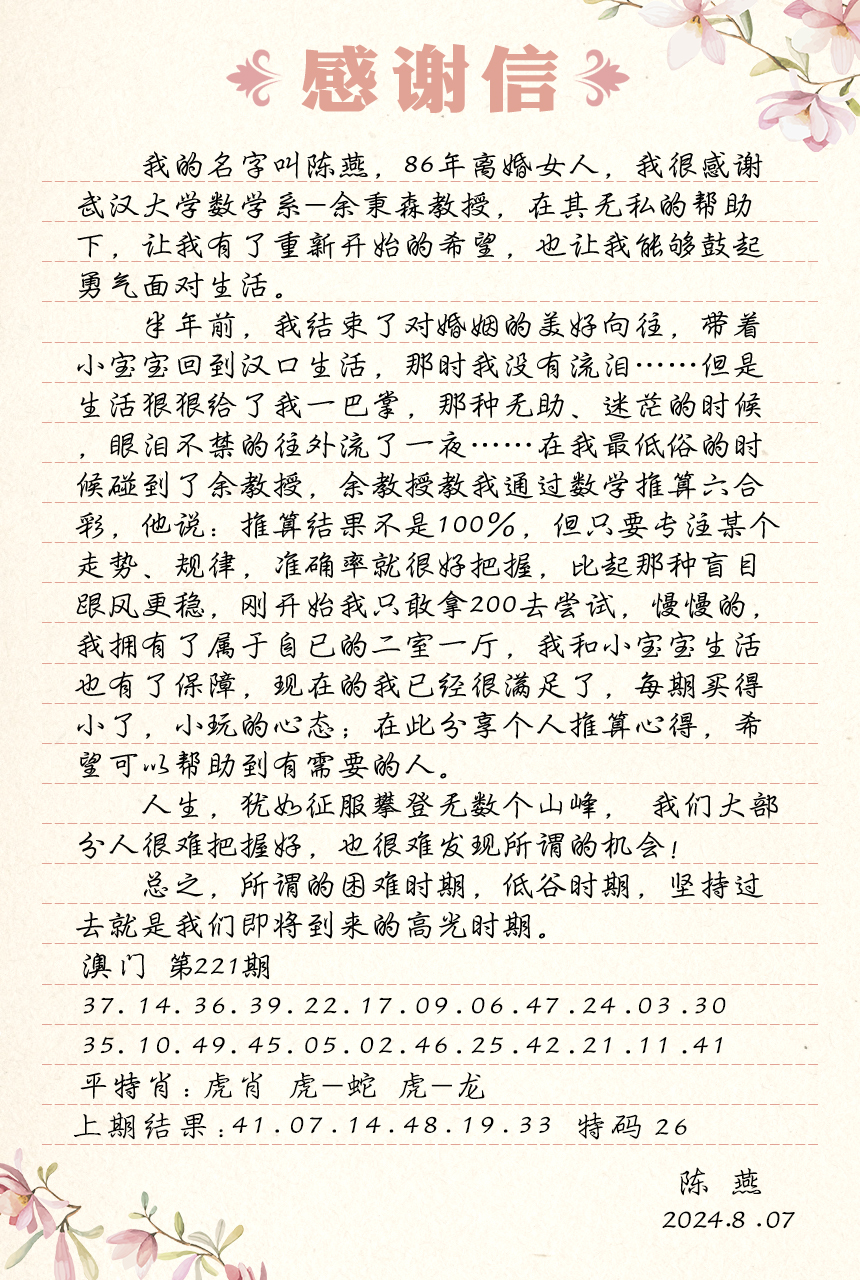 感谢信
我的名字叫陈燕，86年离婚女人，我很感谢
武汉大学数学系—余秉森教授，在其无私的帮助
下，让我有了重新开始的希望，也让我能够鼓起
勇气面对生活。
半年前，我结束了对婚姻的美好向往，带着
小宝宝回到汉口生活，那时我没有流泪……但是
生活狠狠给了我一巴掌，那种无助、迷茫的时候
，眼泪不禁的往外流了一夜……在我最低俗的时
候碰到了余教授，余教授教我通过数学推算六合
彩，他说：推算结果不是100%，但只要专注某个
走势、规律，准确率就很好把握，比起那种盲目
跟风更稳，刚开始我只敢拿200去尝试，慢慢的，
我拥有了属于自已的二室一厅，我和小宝宝生活
也有了保障，现在的我已经很满足了，每期买得
小了，小玩的心态；在此分享个人推算心得，希
望可以帮助到有需要的人。
人生，犹如征服攀登无数个山峰， 我们大部
分人很难把握好，也很难发现所谓的机会！
总之，所谓的困难时期，低谷时期，坚持过
去就是我们即将到来的高光时期。
澳门 第221期
37.14.36.39.22.17.09.06.47.24.03.30
35.10.49.45.05.02.46.25.42.21.11.41
平特肖：虎肖 虎—蛇 虎—龙
上期结果：41.07.14.48.19.33 特码 26
陈 燕
2024.8.07